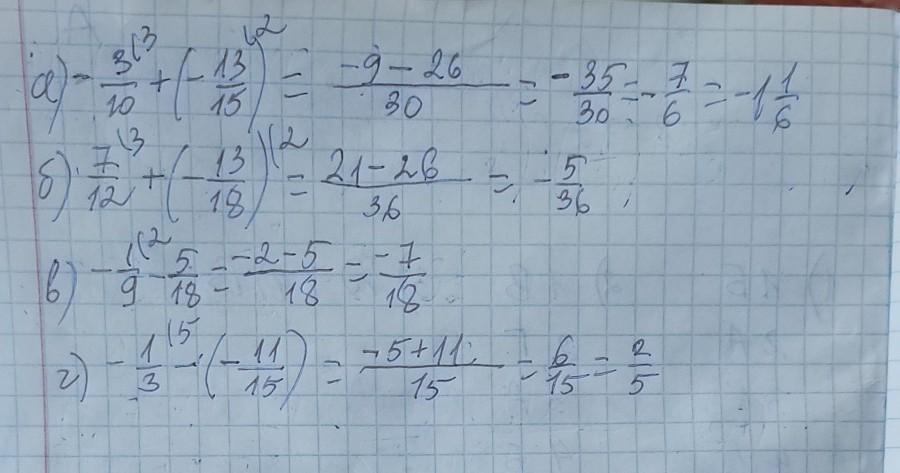 а) -3/10 (3 + (-13/15) (2 = (-9-26)/30 = -35/30 = -7/6 = -1 1/6
б) 7/12 (3 + (-13/18) (2 = (21-26)/36 = -5/36 ;
в) -1/9 (2 - 5/18 = (-2-5)/18 = -7/18
г) -1/3 (5 - (-11/15) = (-5+11)/15 = 6/15 = 2/5